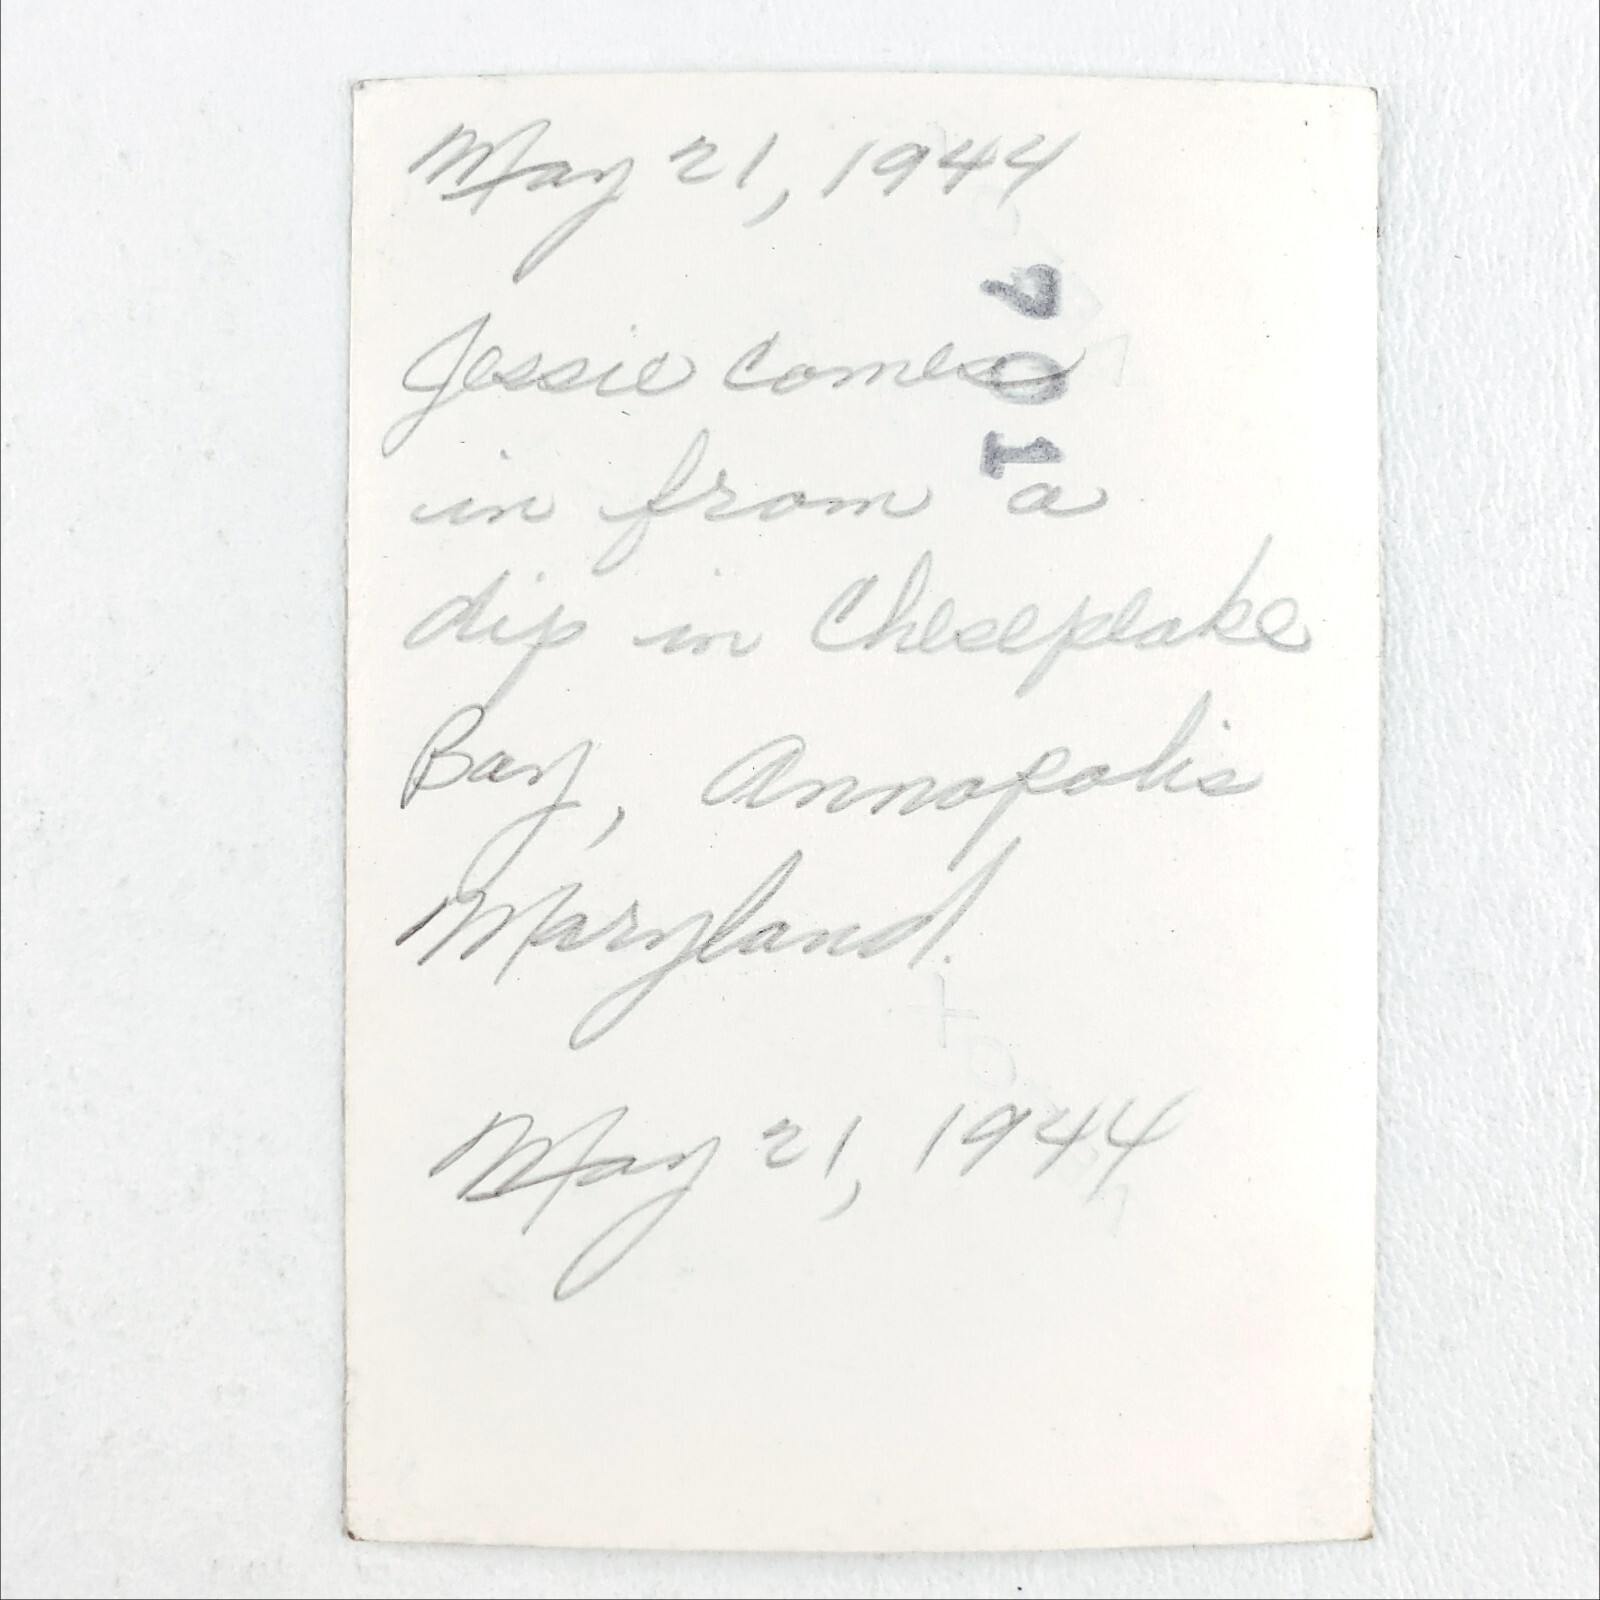 May 21, 1944
701
Jessie comes
in from a
dip in Chesepeake
Bay, Annapolis
Maryland.
May 21, 1944